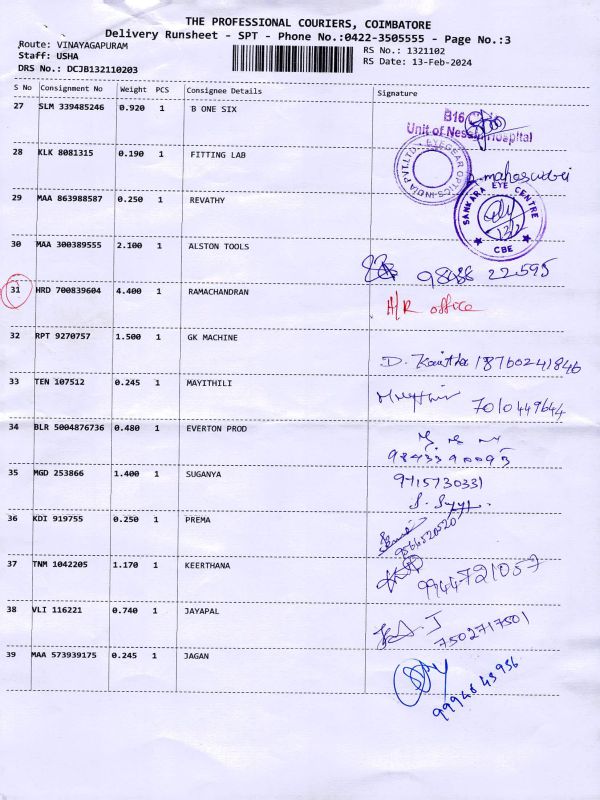 THE PROFESSIONAL COURIERS, COIMBATORE
Delivery Runsheet - SPT - Phone No.:0422-3505555 - Page No.:3
Route: VINAYAGAPURAM
Staff: USHA
DRS No.: DCJB132110203
RS No.: 1321102
RS Date: 13-Feb-2024
S No Consignment No Weight PCS Consignee Details Signature
27 SLM 339485246 0.920 1 B ONE SIX
B16
Unit of Hospital
28 KLK 8081315 0.190 1 FITTING LAB
EYEGEAR OPTICS INDIA PVT.LTD
29 MAA 863988587 0.250 1 REVATHY
SANKARA EYE CENTRE
CBE
30 MAA 300389555 2.100 1 ALSTON TOOLS
22595
31 HRD 700839604 4.400 1 RAMACHANDRAN
H/R office
32 RPT 9270757 1.500 1 GK MACHINE
D. 8760241846
33 TEN 107512 0.245 1 MAYITHILI
7010449644
34 BLR 5004876736 0.480 1 EVERTON PROD
35 MGD 253866 1.400 1 SUGANYA
9715730331
36 KDI 919755 0.250 1 PREMA
9566520520
37 TNM 1042205 1.170 1 KEERTHANA
9944721057
38 VLI 116221 0.740 1 JAYAPAL
7502717501
39 MAA 573939175 0.245 1 JAGAN